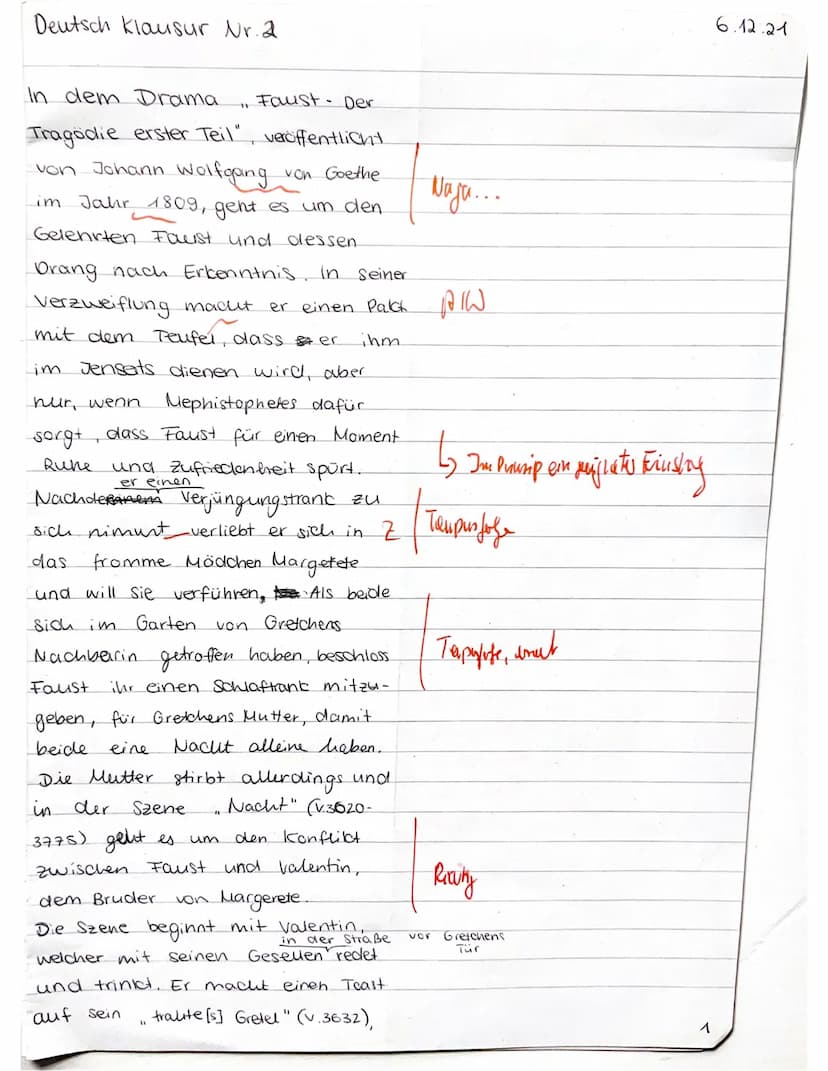 Deutsch Klausur Nr. 2
6.12.21
In dem Drama „Faust - Der
Tragödie erster Teil", veröffentlicht
von Johann Wolfgang von Goethe
im Jahr 1809, geht es um den
Naja...
Gelehrten Faust und dessen
Drang nach Erkenntnis. In seiner
Verzweiflung macht er einen Pakt
mit dem Teufel, dass er ihm
im Jenseits dienen wird, aber
nur, wenn Mephistopheles dafür
sorgt, dass Faust für einen Moment
Ruhe und Zufriedenheit spürt.
↳ Im Prinzip ein Einstieg
er einen
Nachdem Verjüngungstrank zu
sich nimmt verliebt er sich in
Z
Tempusfolge
das fromme Mädchen Margetete
und will Sie verführen. Als beide
sich im Garten von Gretchens
Nachbarin getroffen haben, beschloss
Tempusfolge, erneut
Faust ihr einen Schlaftrank mitzu-
geben, für Gretchens Mutter, damit
beide eine Nacht alleine haben.
Die Mutter stirbt allerdings und
in der Szene „Nacht" (V.3620-
3775) geht es um den Konflikt
zwischen Faust und Valentin,
dem Bruder von Margerete.
Richtig
Die Szene beginnt mit Valentin,
in der Straße vor Gretchens
Tür
welcher mit seinen Gesellen redet
und trinkt. Er macht einen Toast
auf sein „traute[s] Gretel" (V.3632),
1